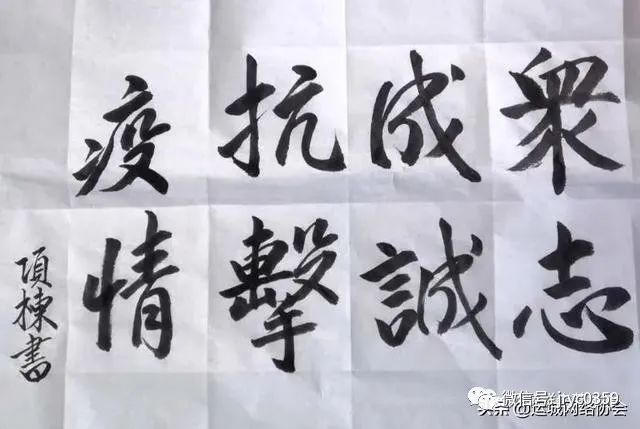 衆志
成誠
抗擊
疫情
項棟書
微信号: jryc0359
头条 @运城网络协会